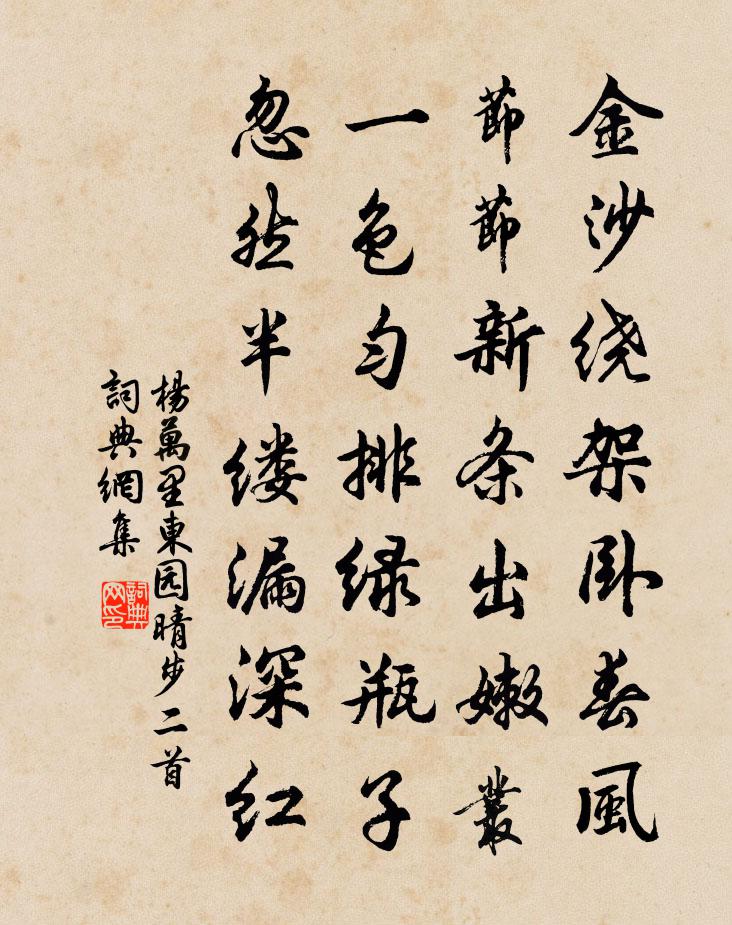 金沙绕架卧春風
節節新条出嫩叢
一色匀排绿瓶子
忽然半缕漏深红
楊萬里東园晴步二首
詞典網集
詞典
网印